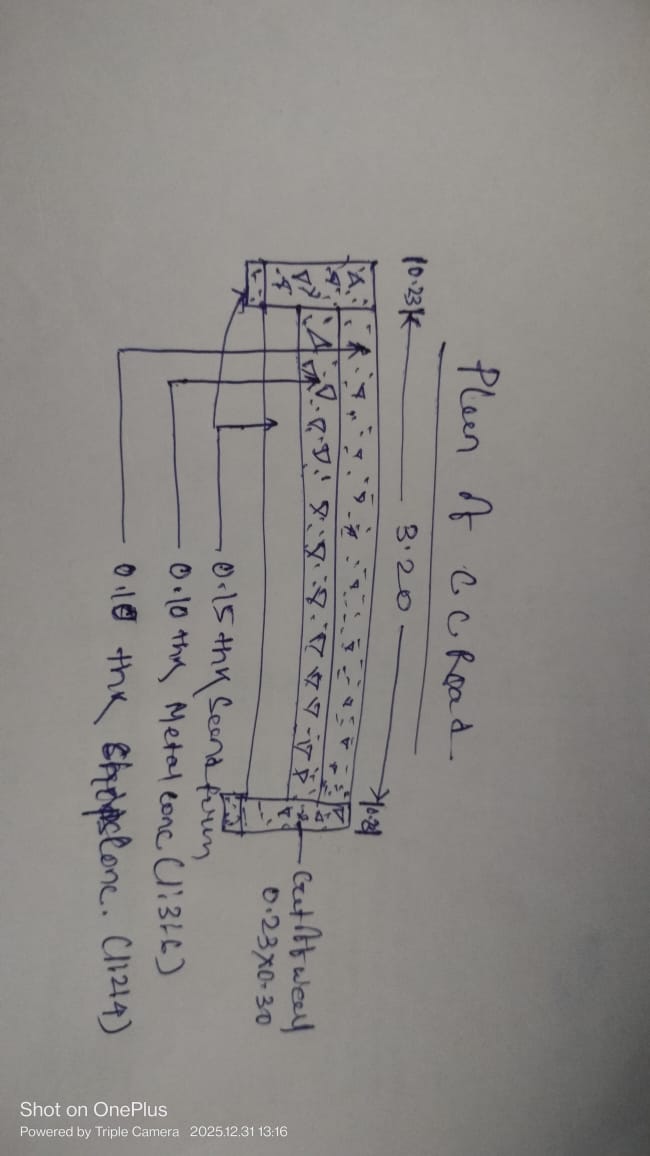 Plan of C C Road
0.23
3.20
0.23
Cut off wall
0.23x0.30
0.15 thk Sand
0.10 thk Metal conc (1:3:6)
0.10 thk Conc. (1:2:4)
Shot on OnePlus
Powered by Triple Camera 2025.12.31 13:16